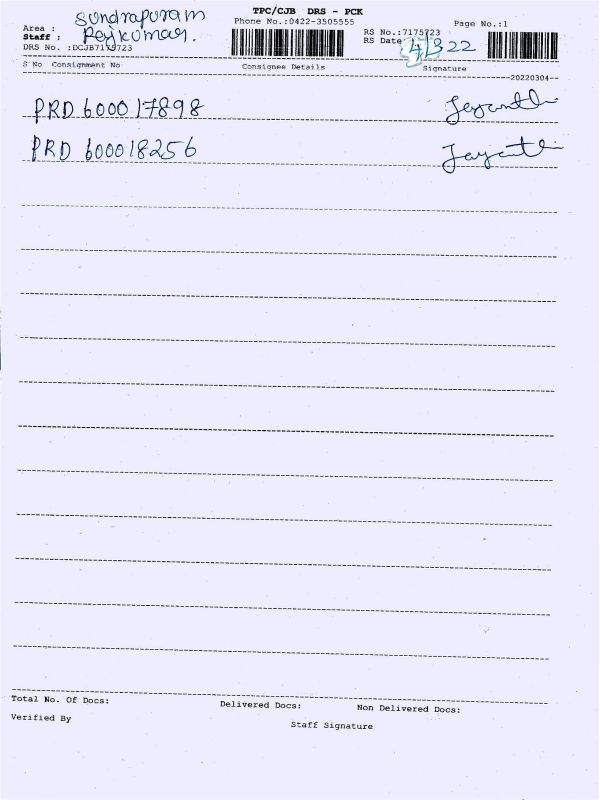 TPC/CJB DRS - PCK
Area : Sundrapuram
Phone No.:0422-3505555
Page No.:1
Staff : Rajkumar.
RS No.:7175723
DRS No. :DCJB7175723
RS Date 4/3/22
S No Consignment No Consignee Details Signature
20220304
PRD 600017898 Jeyanthi
PRD 600018256 Jayanthi
Total No. Of Docs: Delivered Docs: Non Delivered Docs:
Verified By Staff Signature